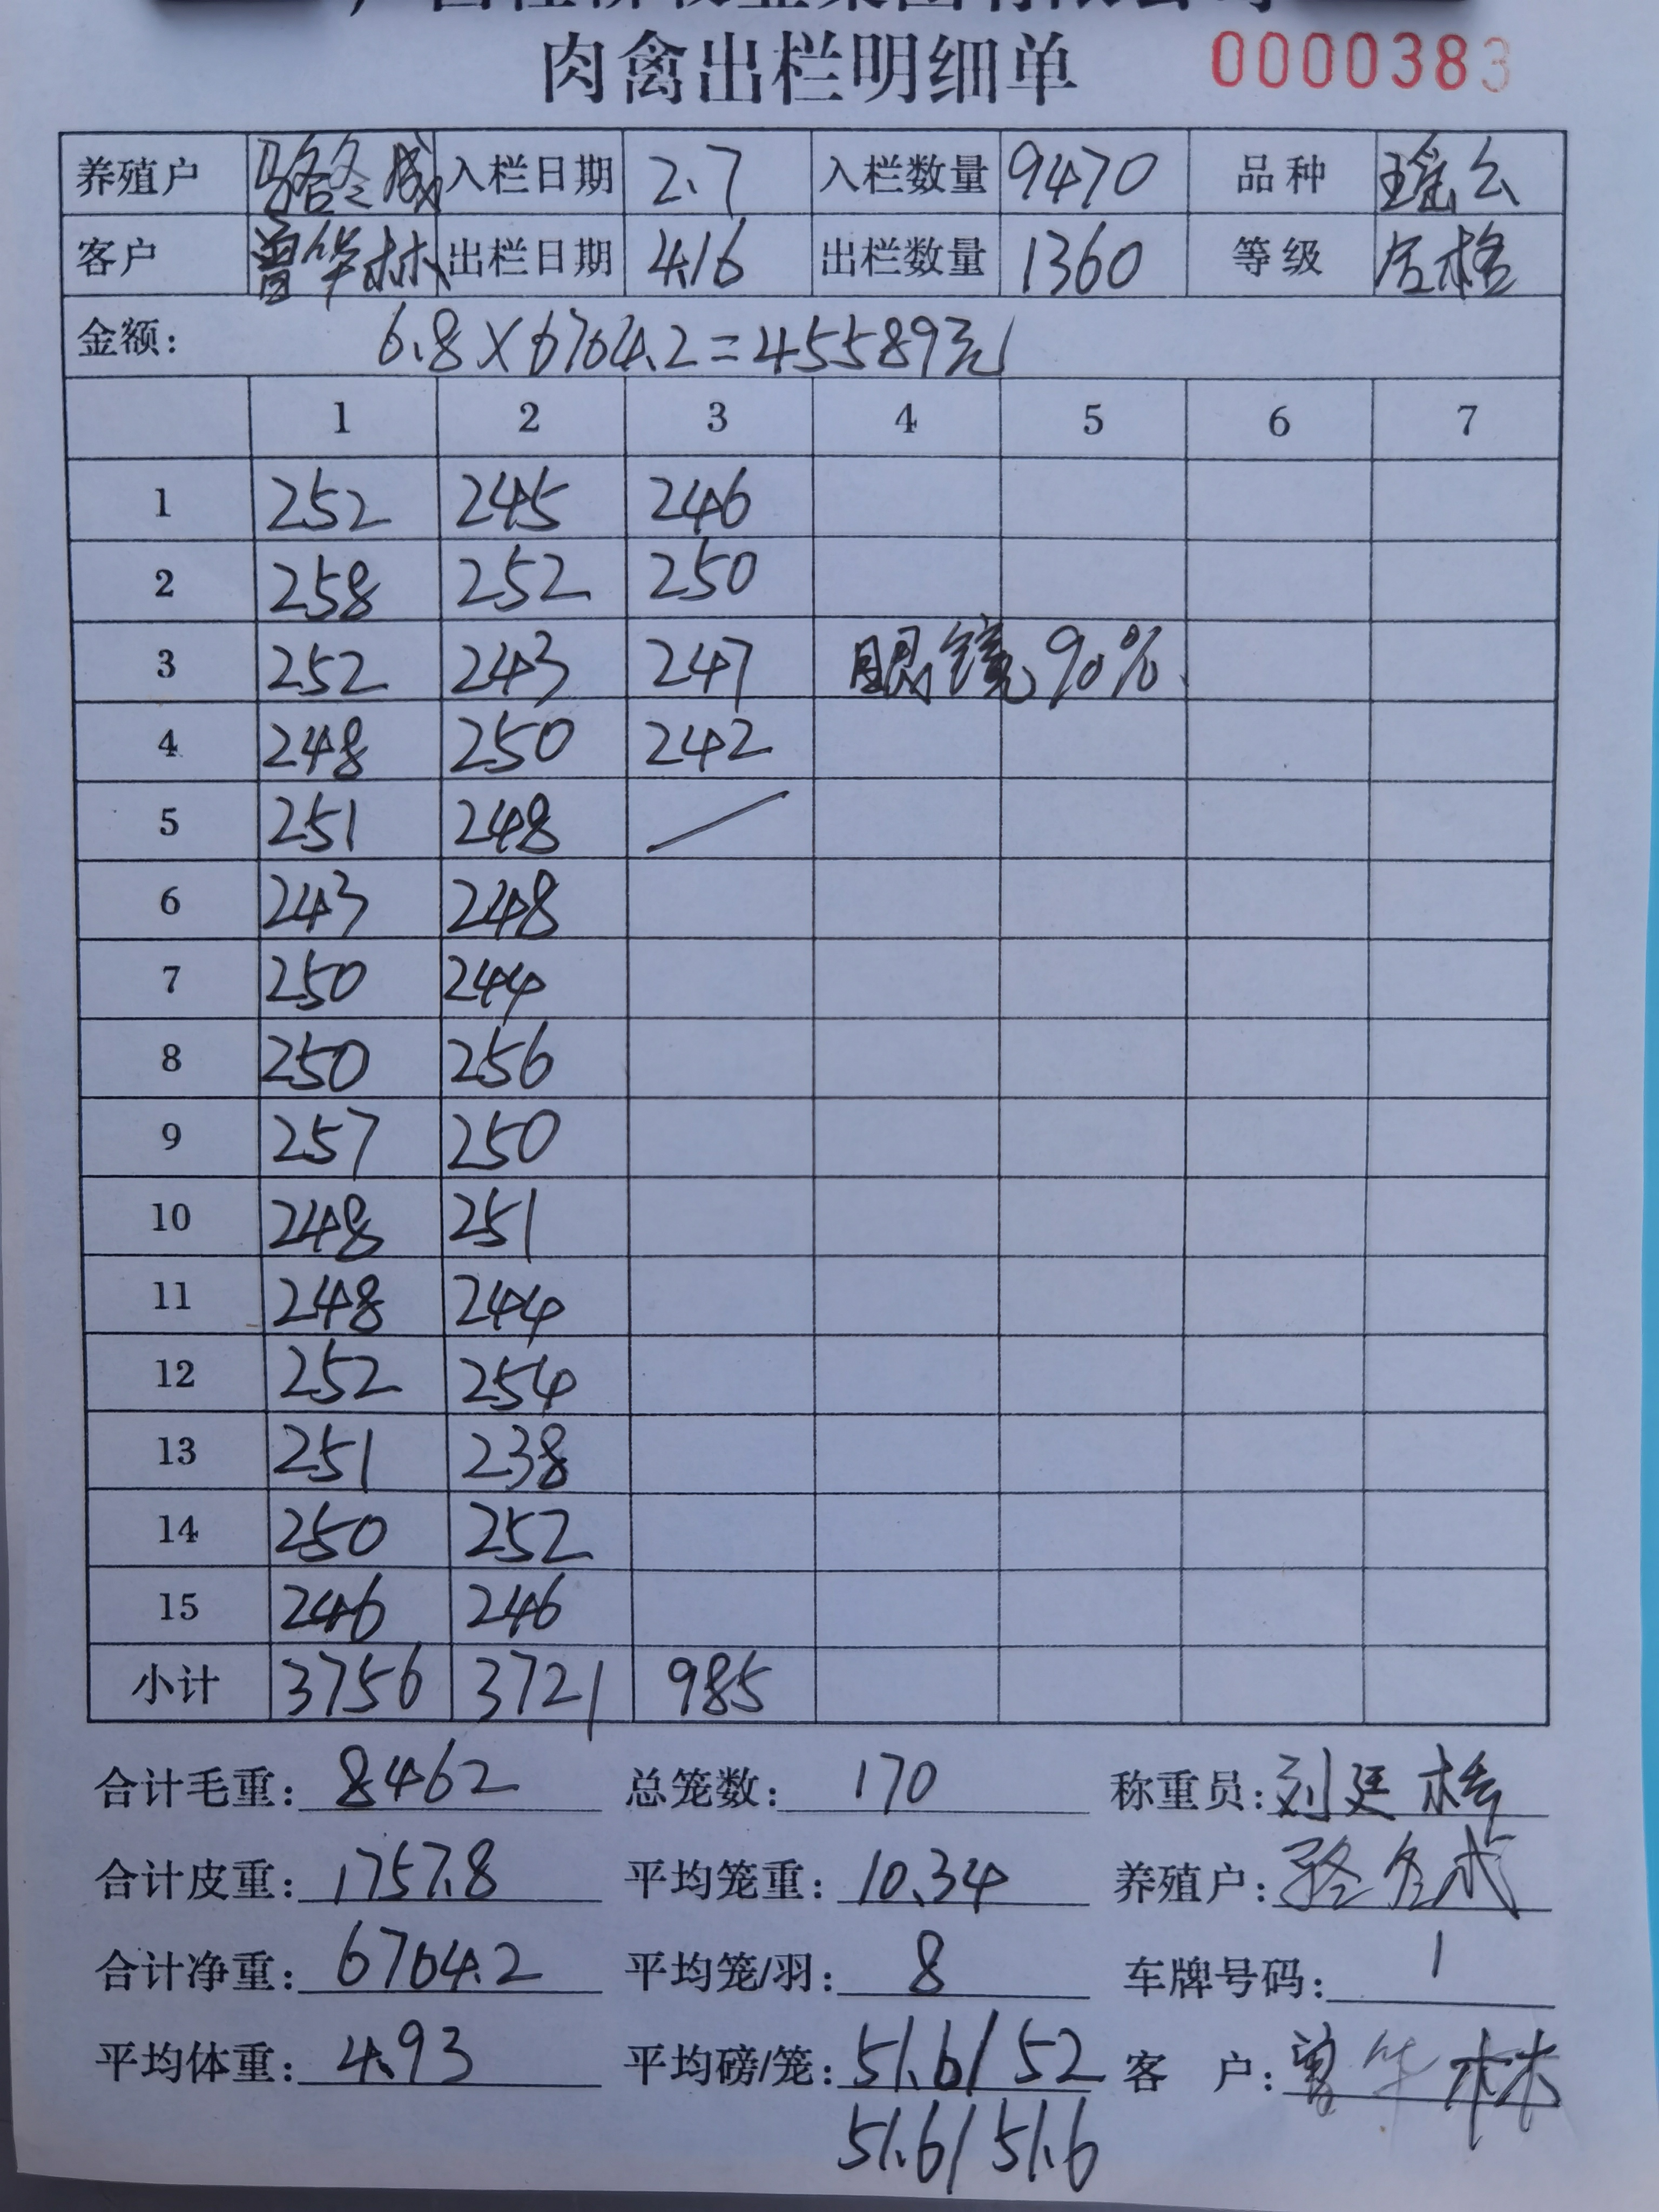 肉禽出栏明细单 0000383
养殖户 骆冬成 入栏日期 2.7 入栏数量 9470 品种 瑶么
客户 曾华林 出栏日期 4.16 出栏数量 1360 等级 合格
金额: 6.8×6704.2=45589元
1 2 3 4 5 6 7
1 252 245 246
2 258 252 250
3 252 243 247 眼镜90%
4 248 250 242
5 251 248 /
6 243 248
7 250 244
8 250 256
9 257 250
10 248 251
11 248 244
12 252 254
13 251 238
14 250 252
15 246 246
小计 3756 3721 985
合计毛重: 8462 总笼数: 170 称重员: 刘廷
合计皮重: 1757.8 平均笼重: 10.34 养殖户: 骆冬成
合计净重: 6704.2 平均笼/羽: 8 车牌号码: 1
平均体重: 4.93 平均磅/笼: 51.6/52 客 户: 曾华林
51.6/51.6